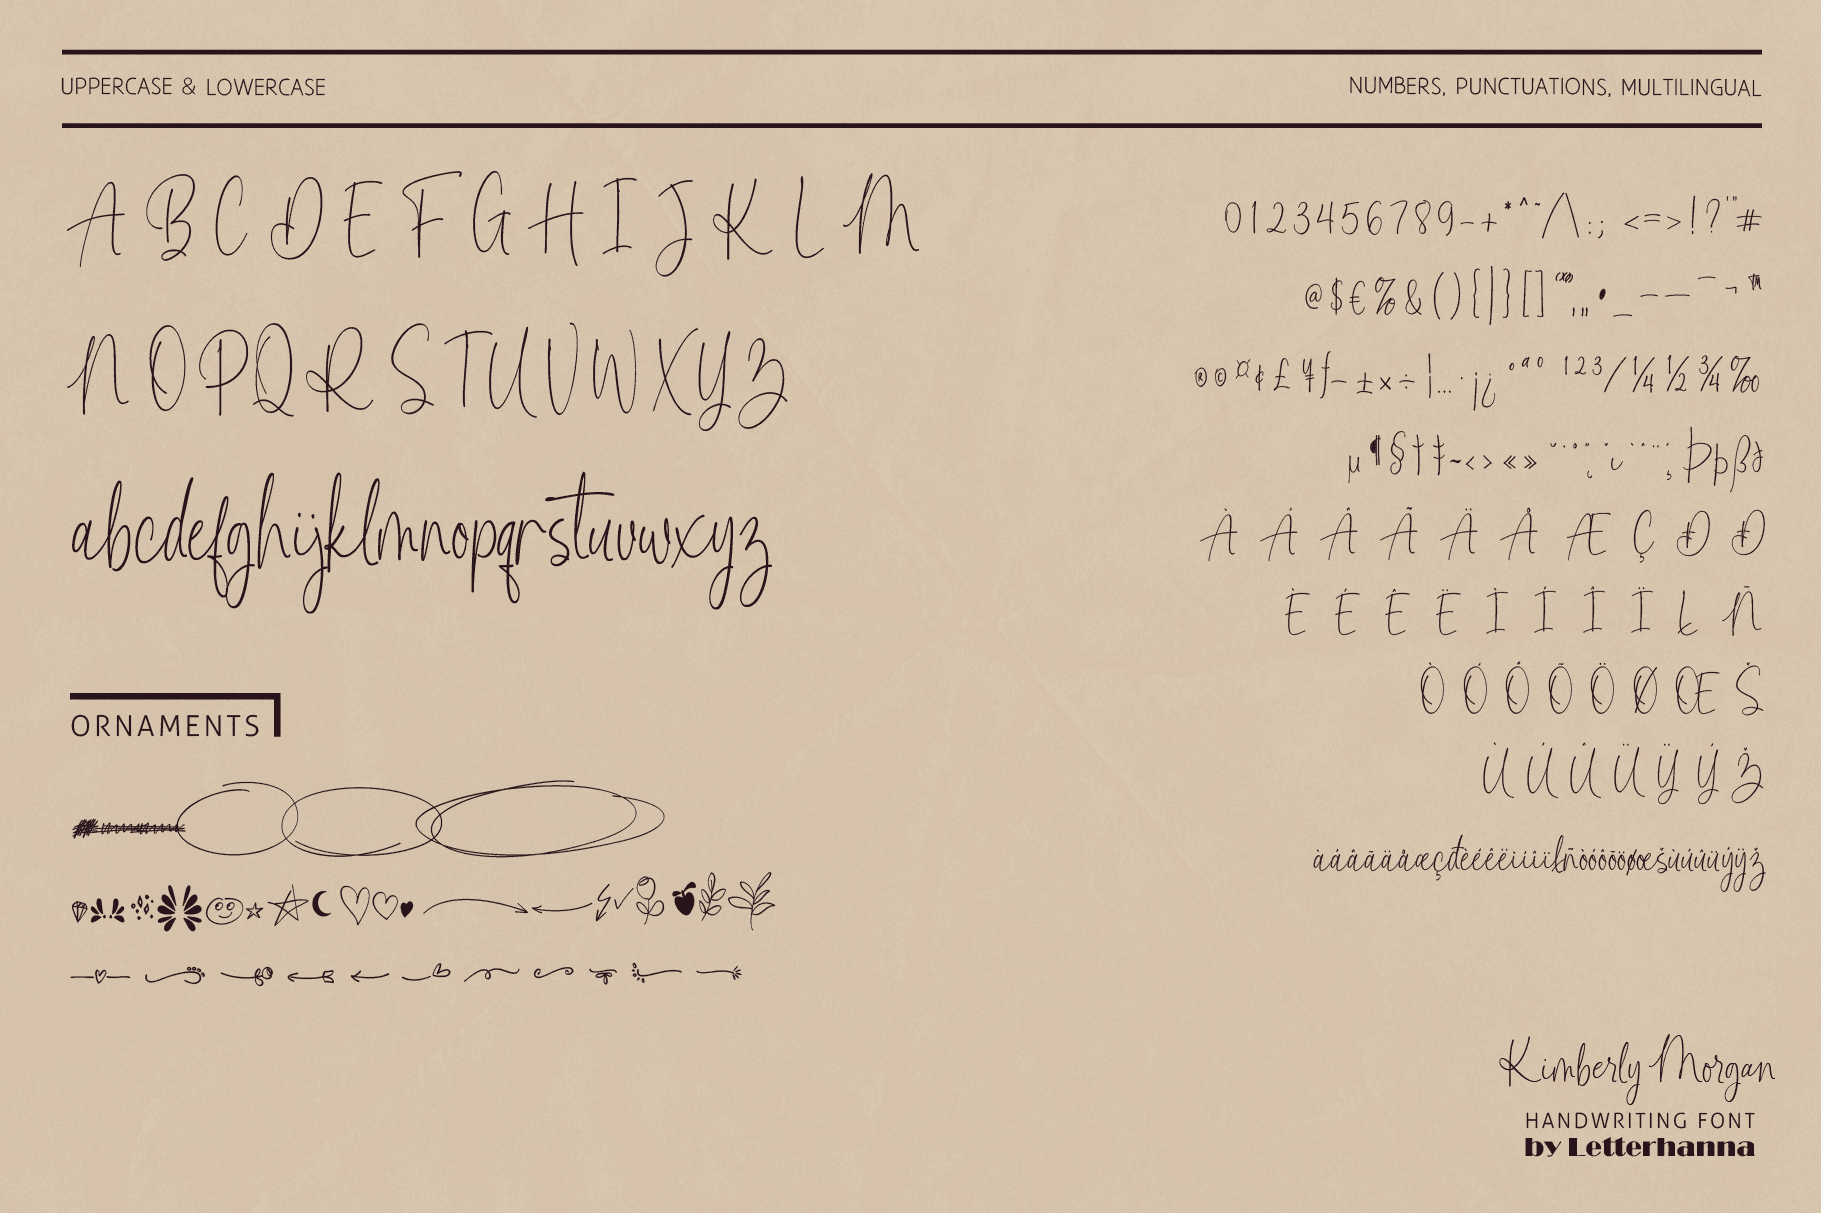 UPPERCASE & LOWERCASE
NUMBERS, PUNCTUATIONS, MULTILINGUAL
A B C D E F G H I J K L M
N O P Q R S T U V W X Y Z
abcdefghijklmnopqrstuvwxyz
ORNAMENTS
0123456789-+*^~/\:; <=>!?'"#
@$€%&(){|}[]“”‘’‚„•_–—¯¬™
®©¤¢£¥ƒ−±×÷¦…·¡¿ºª° ¹²³⁄¼½¾‰
µ¶§†‡~‹›«» Þþßð
À Á Â Ã Ä Å Æ Ç Ð Đ
È É Ê Ë Ì Í Î Ï Ł Ñ
Ò Ó Ô Õ Ö Ø Œ Š
Ù Ú Û Ü Ÿ Ý Ž
àáâãäåæçđèéêëìíîïłñòóôõöøœšùúûüýÿž
Kimberly Morgan
HANDWRITING FONT
by Letterhanna